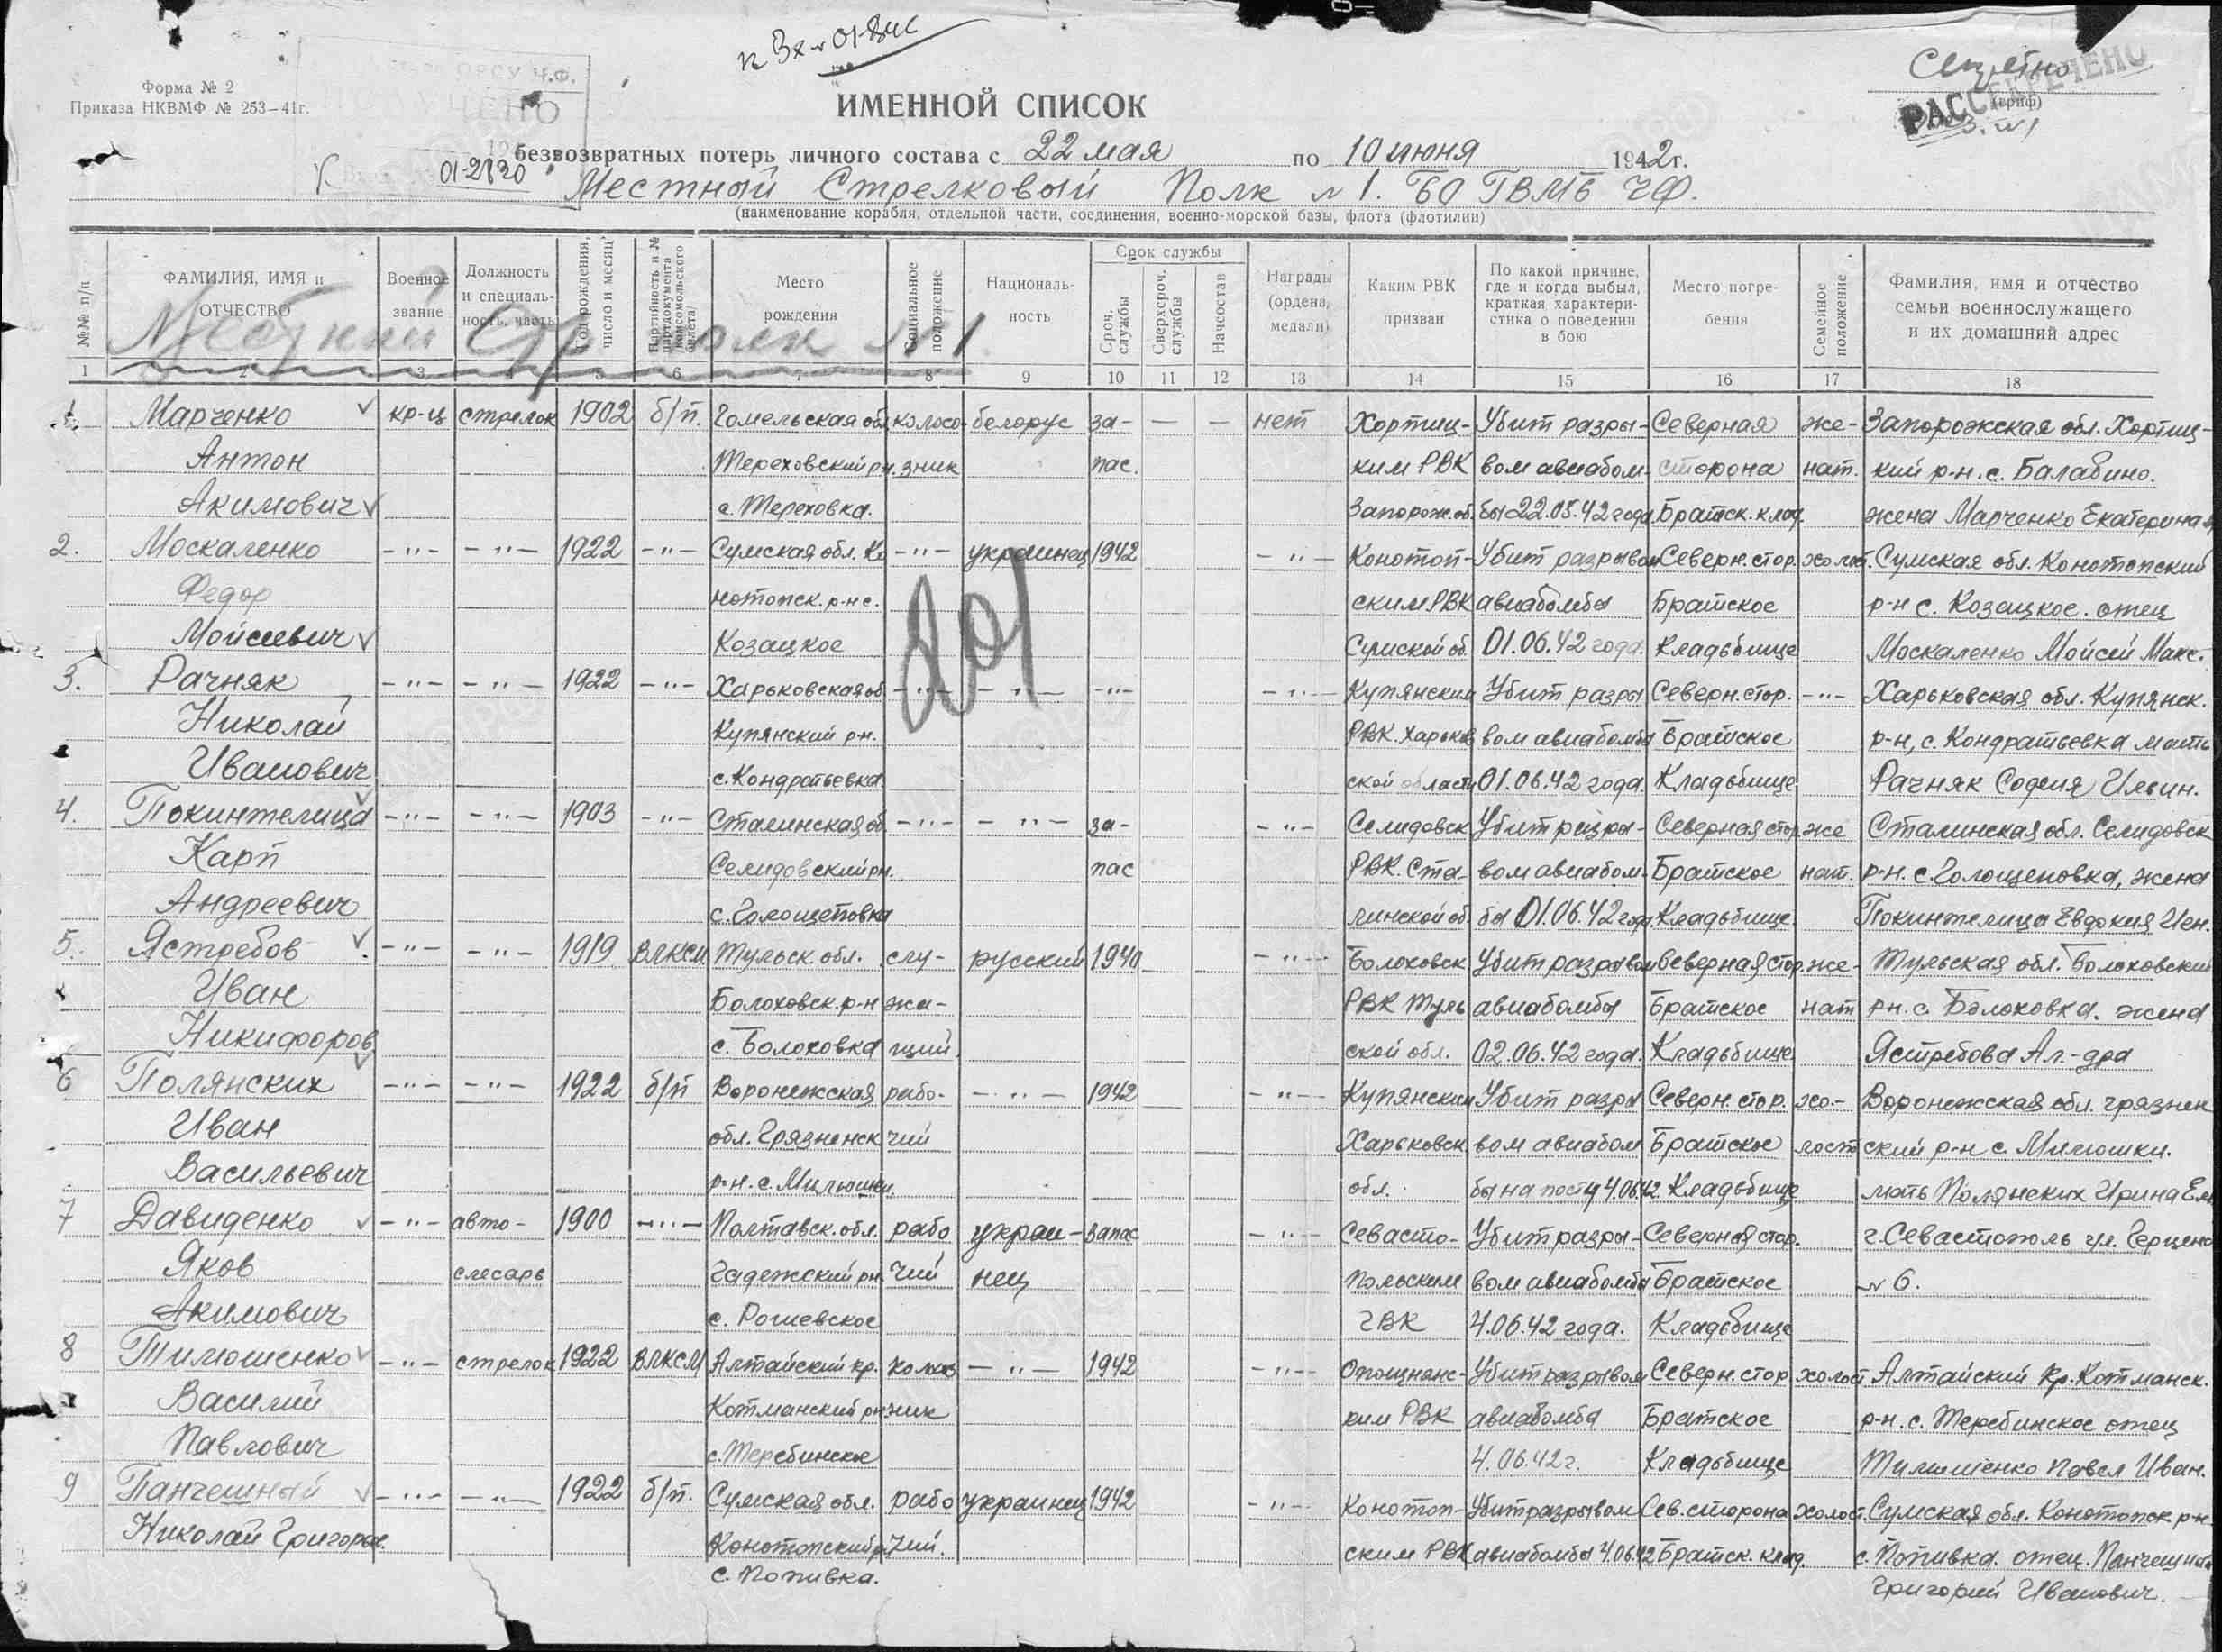 Форма № 2
Приказа НКВМФ № 253–41г.
Секретно
(гриф)
РАССЕКРЕЧЕНО
ИМЕННОЙ СПИСОК
безвозвратных потерь личного состава с 22 мая по 10 июня 1942 г.
01-2130
Местный Стрелковый Полк № 1. БО ГВМБ ЧФ.
(наименование корабля, отдельной части, соединения, военно-морской базы, флота (флотилии)
№№ п/п
ФАМИЛИЯ, ИМЯ и ОТЧЕСТВО
Военное звание
Должность и специальность, часть
Год рождения, число и месяц
Партийность и № партдокумента /комсомольского билета/
Место рождения
Социальное положение
Национальность
Срок службы
Сроч. службы
Сверхсроч. службы
Начсостав
Награды (ордена, медали)
Каким РВК призван
По какой причине, где и когда выбыл, краткая характеристика о поведении в бою
Место погребения
Семейное положение
Фамилия, имя и отчество семьи военнослужащего и их домашний адрес
Местный Стр полк № 1
1 2 3 4 5 6 7 8 9 10 11 12 13 14 15 16 17 18
1. Марченко кр-ц стрелок 1902 б/п. Гомельская обл колхо- белорус за- — — нет Хортиц- Убит разры- Северная же- Запорожская обл. Хортиц-
Антон Тереховский рн. зник пас. ким РВК вом авиабом- сторона нат. кий р-н. с. Балабино.
Акимович с. Тереховка. Запорож.об. бы 22.05.42 года Братск. клад. жена Марченко Екатерина
2. Москаленко -"- -"- 1922 -"- Сумская обл. Ко -"- украинец 1942 -"- Конотоп- Убит разрывом Северн. стор. холост. Сумская обл. Конотопский
Федор нотопск. р-н с. ским РВК авиабомбы Братское р-н с. Козацкое. отец
Мойсеевич Козацкое Сумской об. 01.06.42 года. Кладббище Москаленко Мойсей Макс.
3. Рачняк -"- -"- 1922 -"- Харьковская об -"- -"- -"- -"- Купянским Убит разры Северн. стор. -"- Харьковская обл. Купянск.
Николай Купянский р-н. РВК. Харьков вом авиабомбы Братское р-н, с. Кондратьевка мать
Иванович с. Кондратьевка ской области 01.06.42 года. Кладббище Рачняк София Ильин.
4. Покинтелица -"- -"- 1903 -"- Сталинская об. -"- -"- за- -"- Селидовск Убит разры- Северная стор. же Сталинская обл. Селидовск
Карп Селидовский рн. пас РВК. Ста- вом авиабом- Братское нат. р-н. с Голощеповка, жена
Андреевич с. Голощеповка линской об бы 01.06.42 года. Кладббище. Покинтелица Евдокия
5. Ястребов -"- -"- 1919 ВЛКСМ Тульск. обл. слу- русский 1940 -"- Болоховск Убит разрывом Северная стор. же- Тульская обл. Болоховский
Иван Болоховск. р-н жа- РВК Туль авиабомбы Братское нат рн. с. Болоховка. жена
Никифоров с. Болоховка щий. ской обл. 02.06.42 года. Кладббище Ястребова Ал.-дра
6 Полянских -"- -"- 1922 б/п Воронежская рабо- -"- 1942 -"- Купянским Убит разры Северн. стор. хо- Воронежская обл. грязнен
Иван обл. Грязненск чий Харьковск. вом авиабом Братское лост ский р-н с. Милюшки.
Васильевич р-н. с. Милюшки. обл. бы на посту 4.06.42 Кладббище мать Полянских Ирина
7 Давиденко -"- авто- 1900 -"- Полтавск. обл. рабо украи- запас -"- Севасто- Убит разры- Северная стор. г. Севастополь ул. Герцена
Яков слесарь Гадежский рн чий нец польским вом авиабомбы Братское № 6.
Акимович с. Рошевское ГВК 4.06.42 года. Кладббище
8 Тимошенко -"- стрелок 1922 ВЛКСМ Алтайский кр. колхоз -"- 1942 -"- Опошнянс- Убит разрывом Северн. стор холост. Алтайский Кр. Котманск.
Василий Котманский рн ник ким РВК авиабомбы Братское р-н. с. Теребинское отец
Павлович с. Теребинское 4.06.42 г. Кладббище Тимошенко Павел Иван.
9 Панчешный -"- -"- 1922 б/п. Сумская обл. рабо украинец 1942 -"- Конотоп- Убит разрывом Сев. сторона холост. Сумская обл. Конотопск р-н
Николай Григорьев. Конотопский р. чий. ским РВК авиабомбы 4.06.42 Братск. клад. с. Попивка. отец. Панчешный
с. Попивка. Григорий Иванович.